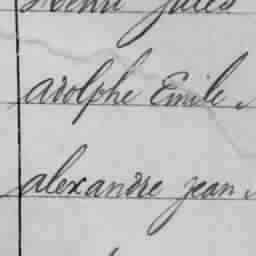 Henri Jules
adolphe Emile
alexandre jean